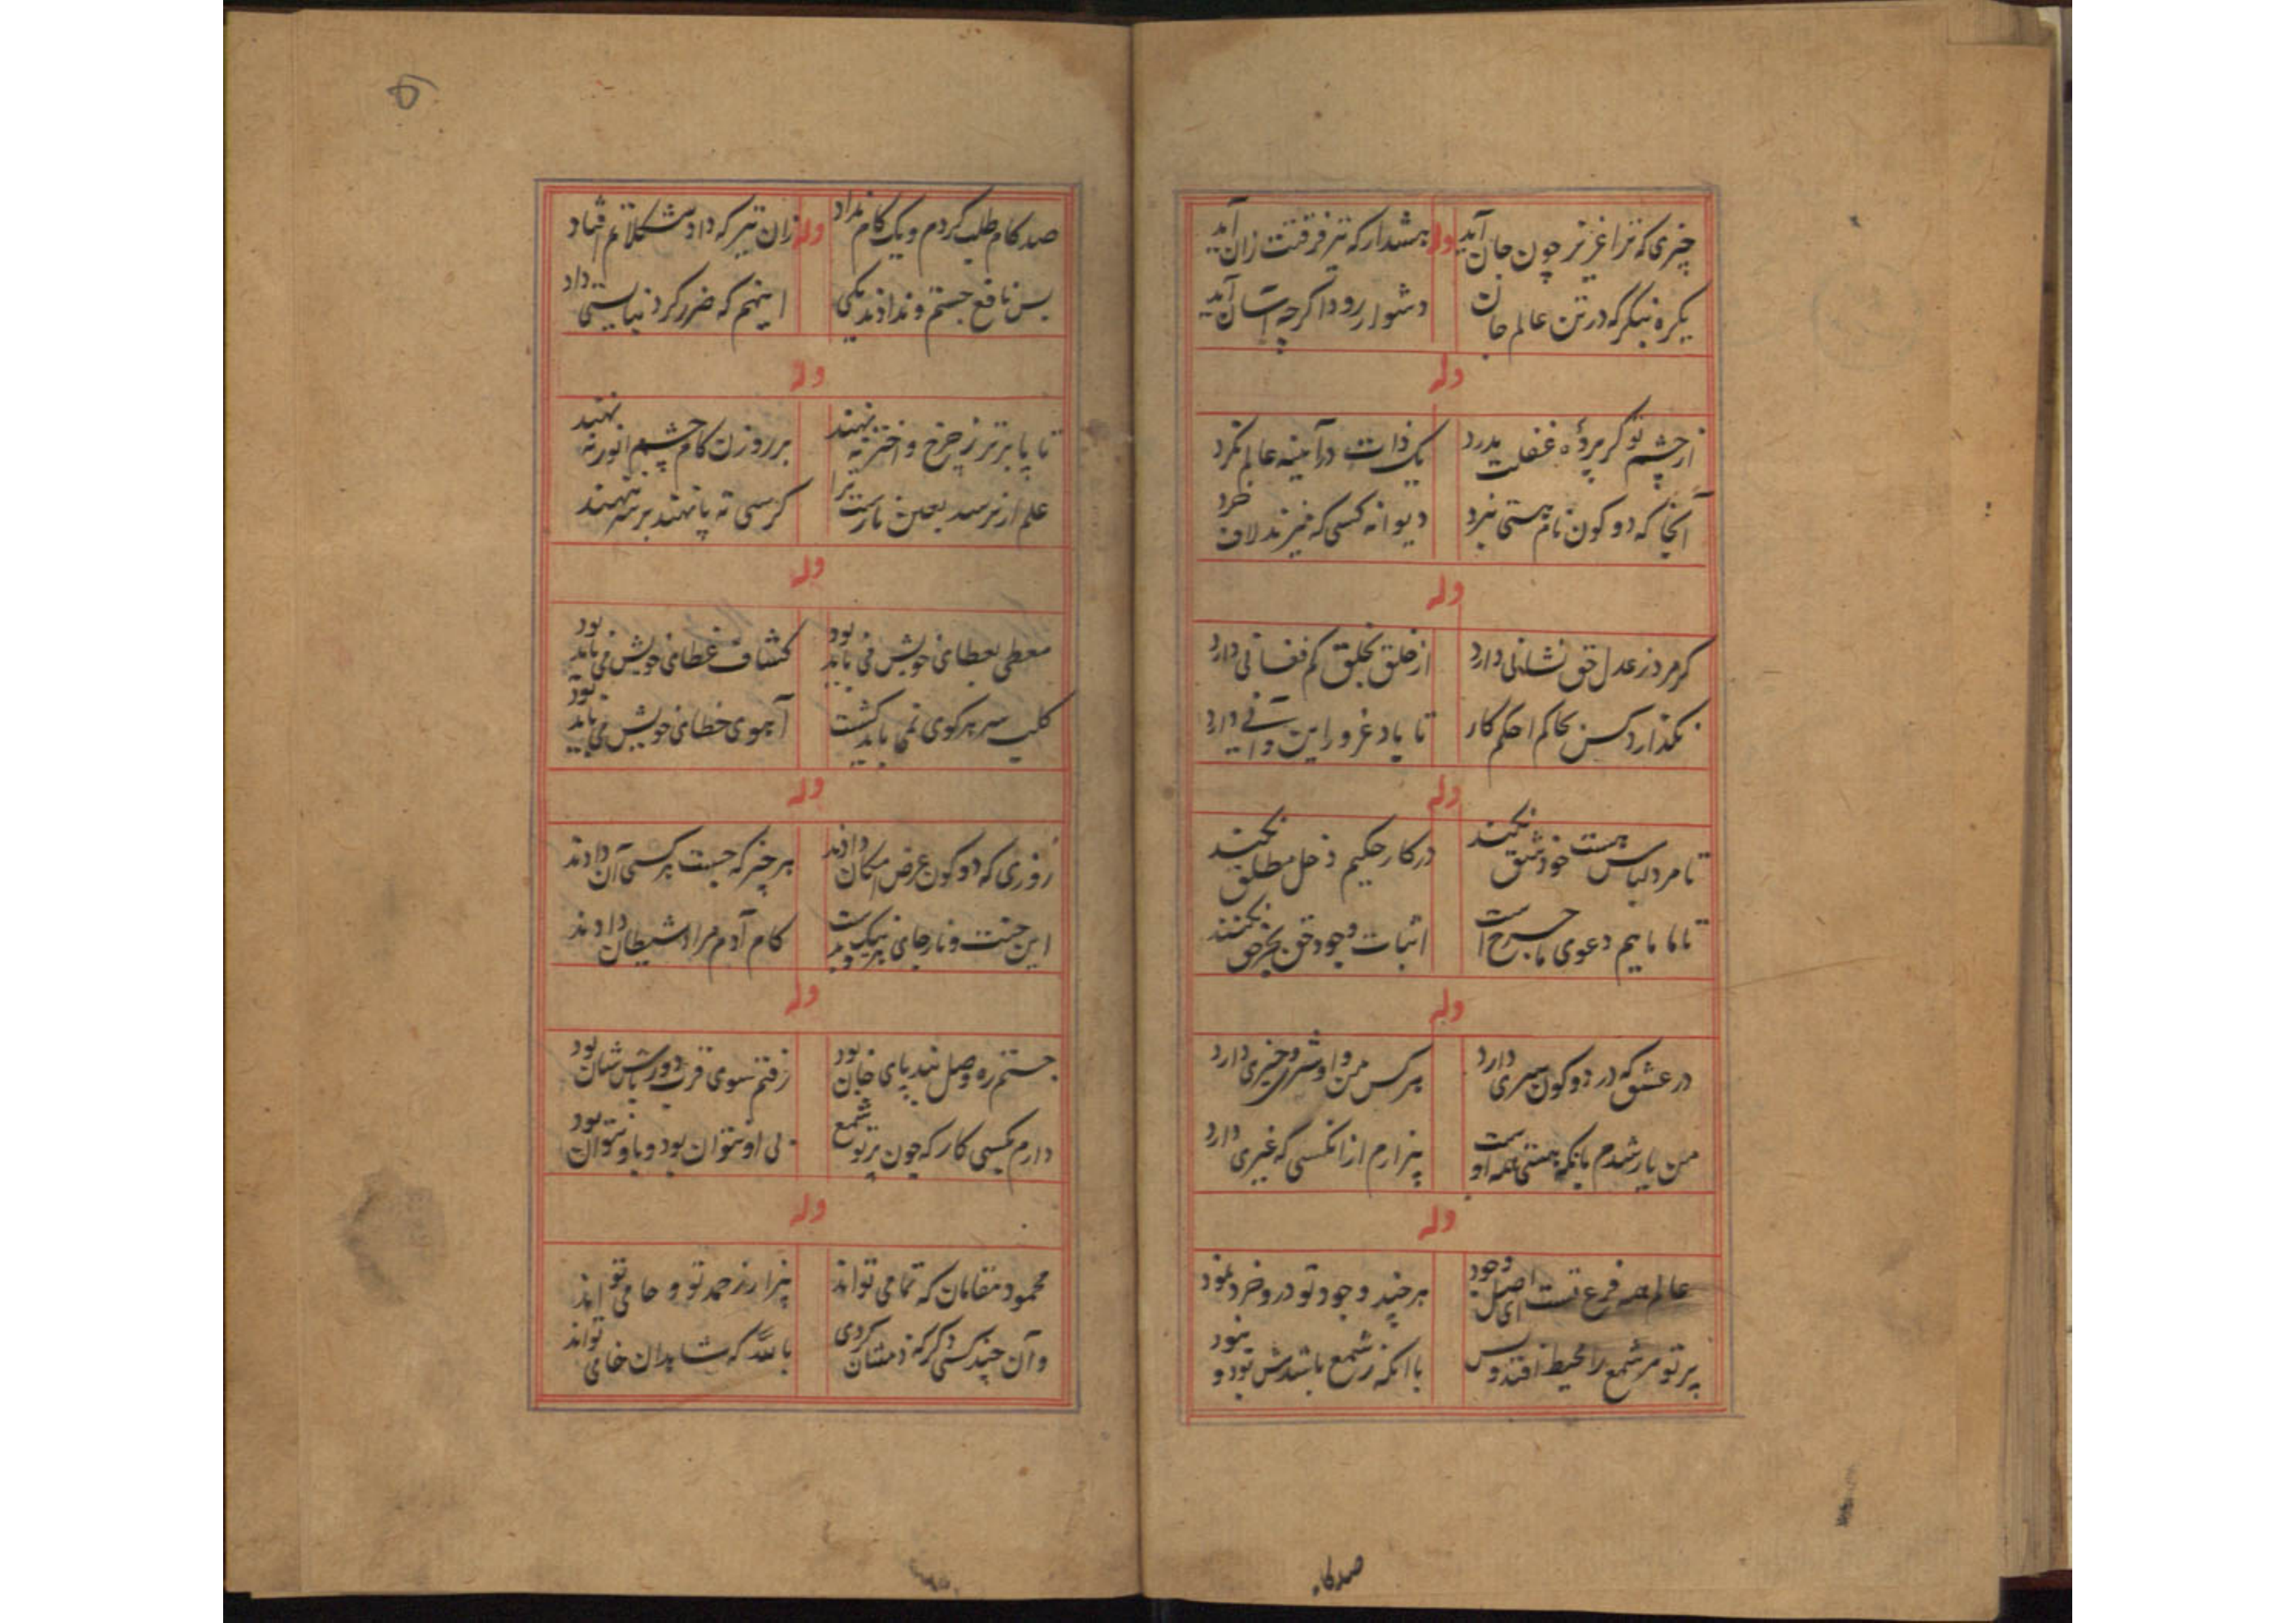 چیزی که ترا عزیزتر چون جان آید
وله
هشدار که تیر فرقتت زان آید
یکره بنگر که در تن عالم جان
دشوار رود اگرچه آسان آید
وله
از چشم تو گر پردهٔ غفلت بدرد
یک ذات در آینه عالم نگرد
آنجا که دو کون نام هستی نبرد
دیوانه کسی که میزند لاف خرد
وله
گر مرد ز عدل حق نشانی دارد
از خلق بخلق کم فغانی دارد
نگذارد کس بحاکم احکم کار
تا یاد غرور این و آنی دارد
وله
تا مرد لباس هست خود شق نکند
در کار حکیم دخل مطلق نکند
تا ما ماییم دعوی ما جرح است
اثبات وجود حق بجز حق نکند
وله
در عشق که در دو کون سیری دارد
هر کس من و او شری و خیری دارد
من یار شدم بانکه هستی همه اوست
بیزارم از انکسی که غیری دارد
وله
عالم همه فرع تست ای اصل وجود
هر چند وجود تو درو خرد نمود
پرتو مر شمع را محیط افتد و بس
با آنکه ز شمع باشدش بود و نبود
صد کام
۵
صد کام طلب کردم و یک کام نداد
وله
زان تیر که داد مشکلاتم افتاد
بس نافع جستم و ندادند یکی
اینهم که ضرر کرد نبایستی داد
وله
تا پا برتر ز چرخ و اختر ننهند
بر روزن کام چشم انور ننهند
علم ار نرسد بعین نارست ترا
کرسی ته پا نهند بر سر ننهند
وله
معطی بعطای خویش می باید بود
کشاف غطای خویش می باید بود
کلب سر هر کوی نمی باید گشت
آهوی خطای خویش می باید بود
وله
روزی که دو کون عرض امکان دادند
هر چیز که جست هر کسی آن دادند
این جنت و نار جای نیک است و بد
کام آدم مراد شیطان دادند
وله
جستم ره وصل بند پای جان بود
رفتم سوی قرب دورباش شان بود
دارم بکسی کار که چون پرتو شمع
بی او نتوان بود و با و نتوان بود
وله
محمود مقامان که تمامی تواند
بیزار ز حمد تو و حامی تواند
وان چند کسی دگر که ذمشان کردی
بالله که شاهدان خامی تواند